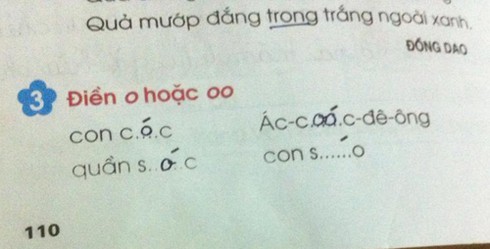 Quả mướp đắng trong trắng ngoài xanh.
ĐỒNG DAO
3 Điền o hoặc oo
con c.ó.c Ác-c.oó.c-đê-ông
quần s..ó..c con s......o
110